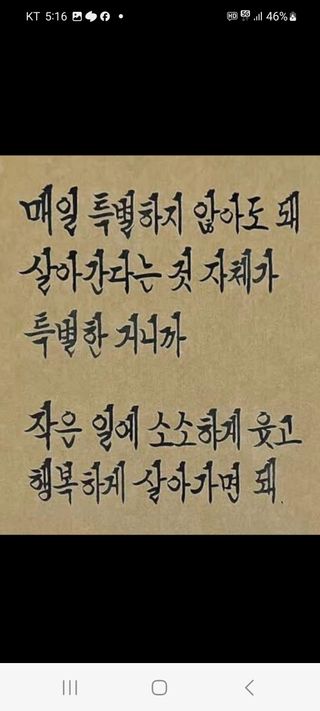 KT 5:16
HD 5G 46%
매일 특별하지 않아도 돼
살아간다는 것 자체가
특별한 거니까
작은 일에 소소하게 웃고
행복하게 살아가면 돼.